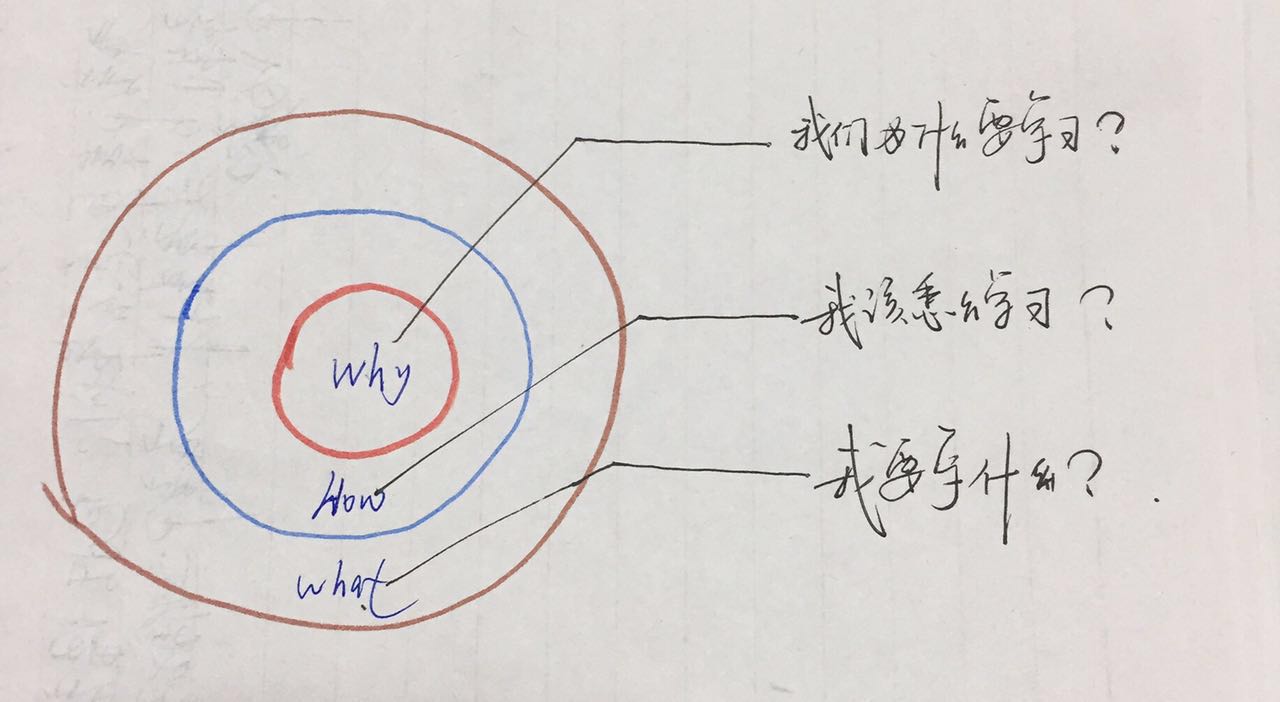 我们为什么要学习？
Why
我该怎么学习？
How
我要学什么？
what